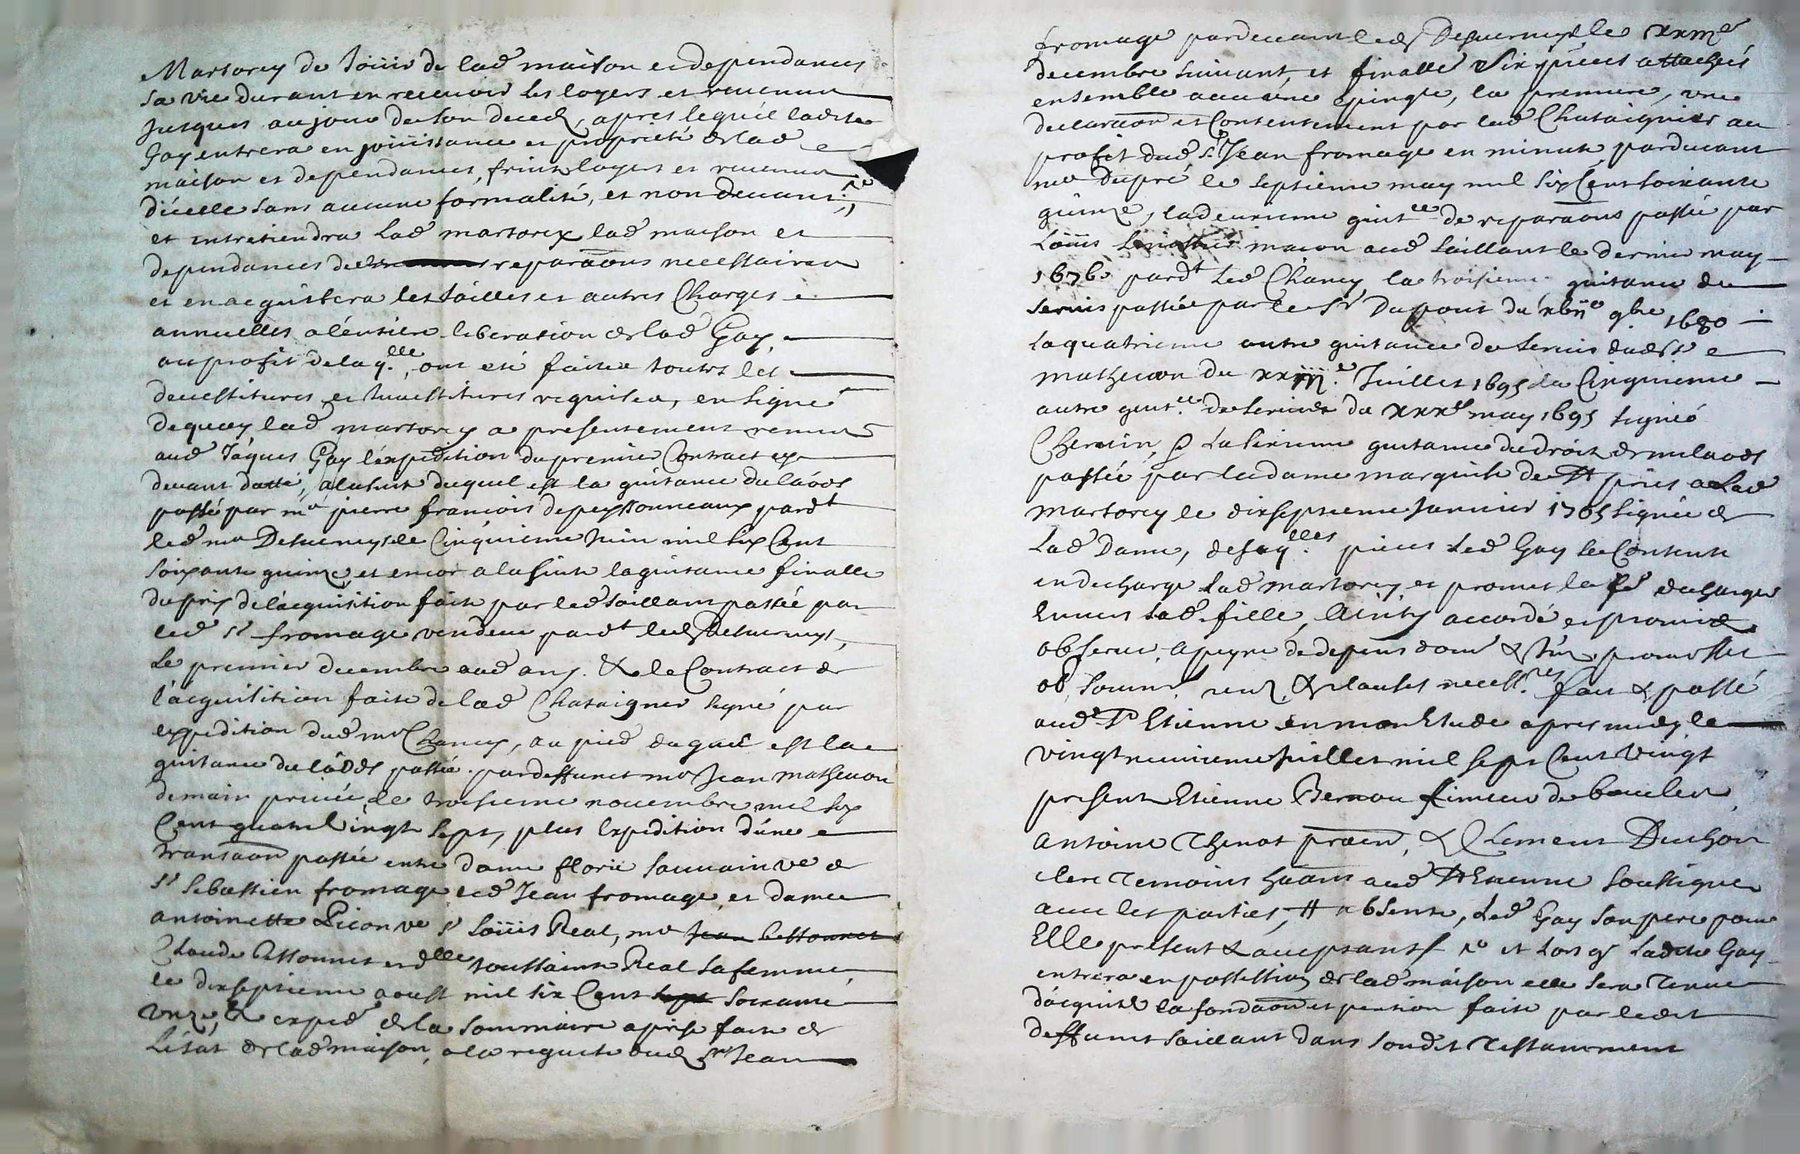 Martorey de Joüir de lad maison et dependances
sa vie durant en recevoir les loyers et revenus
jusques au jour de son deced, apres lequel ladite
Gay entrera en joüissance et proprieté de lad
maison et dependances, fruits loyers et revenus
d'icelle sans aucune formalité, et non devant;
et entretiendra Lad martorey lad maison et
dependances des reparaons necessaires
et en acquistera les tailles et autres Charges
annuelles a l'entiere liberation de lad Gay,
au profit de laq.lle, ont eté faites toutes les
devestitures et Investitures requises, en signe
de quoy lad martorey a presentement remis
aud Jâques Gay l'expedition du premier Contract cy
devant datté, a la suite duquel est la quitance du laods
passé par mr pierre francois depeyssonneaux pardt
led mr Desherneys le Cinquieme Juin mil six Cent
soixante quinze, et encor a la suite la quitance finalle
du prix de l'acquisition faite par led saillant passée par
led Sr fromage vendeur pardt led Desherneys,
Le premier decembre aud an, & le Contract de
l'acquisition faite de lad Chataignier signé par
expedition dud mr Chancy, au pied duquel est la
quitance du laods passée par deffunct mr Jean mathevon
demain privée, le troisieme novembre mil six
Cent quatre vingt sept, plus Expedition d'une
transaon passée entre dame florie sauvain ve de
Sr Sebastien fromage led Jean fromage, et dame
antoinette Picon ve Sr Loüis Real, mr Jean Bessonnet
Claude Bessonnet et dlle toussainte Real sa femme
le dixseptieme aoust mil six Cent sept soixante
unze, & exped de la sommaire aprise faite de
L'état de lad maison, a la requeste dud Sr Jean
fromage pardevant led Desherneys le xxme
decembre suivant, et finalle six pieces attachées
ensemble avec une épingle, la premiere, une
declaraon et Consentement par lad Chataignier au
profit dud Sr Jean fromage en minute pardevant
me Dupré le septieme may mil six Cent soixante
quinze, la deuxieme quitce de reparaons passée par
Loüis maçon aud saillant le dernier may
1676 pardt Led Chancy, la troisieme quitance de
servis passée par le Sr Dupont du xbije 9bre 1680
La quatrieme autre quitance de servis dud Sr
mathevon du xxiije Juillet 1695 la Cinquieme
autre quitce de servis du xxxe may 1695 signée
, & La sixieme quitance du droit de milaods
passée par la dame marquise de St priest a Lad
martorey le dixseptieme Janvier 1705 signée de
Lad Dame, desq.lles pieces Led Gay se Contente
en decharge Lad martorey et promet la fe decharger
Envers Lad fille, Ainsy accordé et promis
observer, a peyne de depens dom & Int, promesses
ob, soum, renz, & clauses necess.res fait & passé
aud St Etienne en mon Etude apres midy le
vingt neuvieme Juillet mil sept Cent Vingt
present Etienne Bernou limeur de boucles,
antoine Thenot praen, & Clement Duchon
clerc temoins haans aud St Etienne soussignes
avec les parties, # absente, Led Gay son pere pour
Elle present & acceptant re et lors q Ladite Gay
entrera en possession de lad maison elle sera tenue
d'acquiter la fondaon et pention faite par ledit
deffunct saillant dans sondit testamment